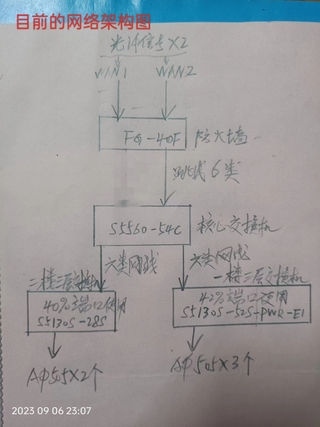 目前的网络架构图
光纤信号X2
WAN1 WAN2
FG-40F 防火墙
跳线 6类
S5560-54C 核心交换机
六类网线 六类网线
二楼三层交换机 一楼三层交换机
40%端口使用 42%端口使用
S5130S-28S S5130S-52S-PWR-EI
AP505X2个 AP505X3个
2023 09 06 23:07